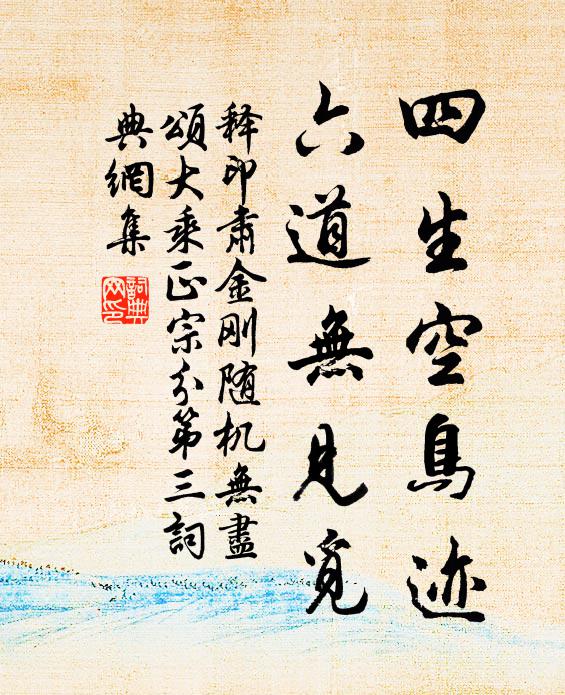 四生空鳥迹
六道無見覓
释印肃金刚随机無盡
頌大乘正宗分第三詞
典網集
詞典
网印